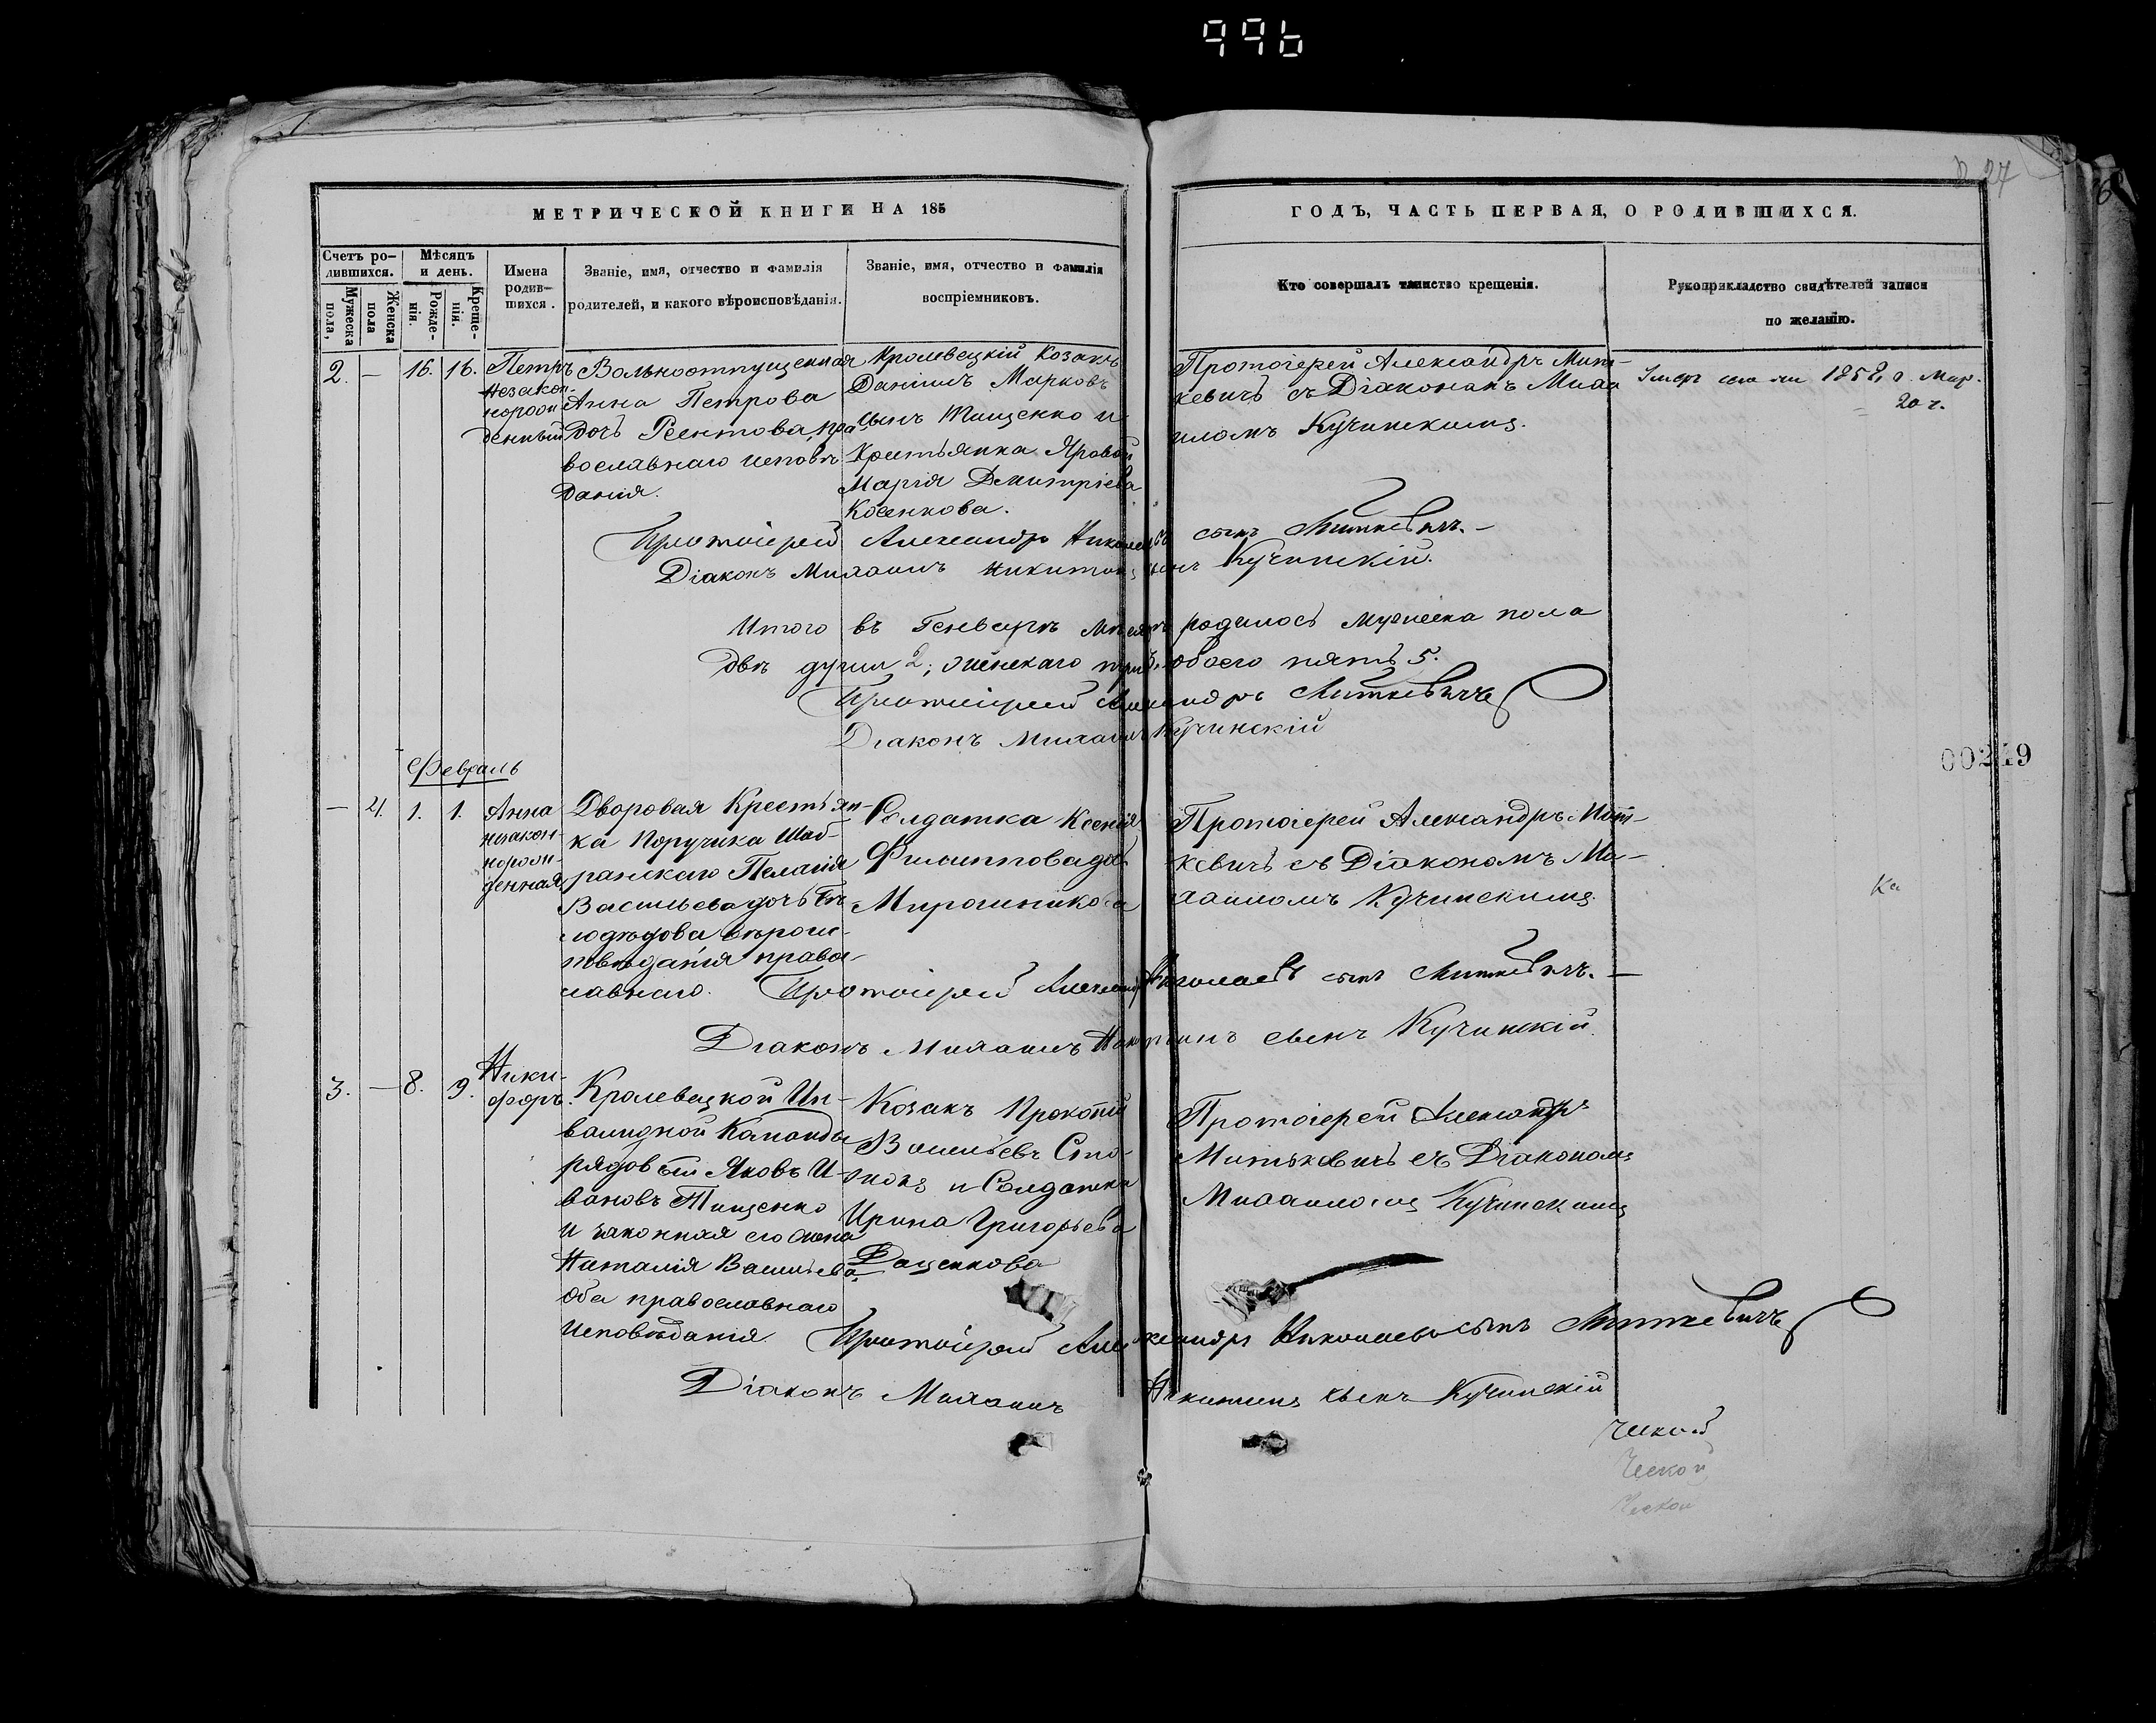 996
27
МЕТРИЧЕСКОЙ КНИГИ НА 185
ГОДЪ, ЧАСТЬ ПЕРВАЯ, О РОДИВШИХСЯ.
Счетъ ро-
дившихся.
Мужеска
пола,
Женска
пола
Мѣсяцъ
и день.
Рожде-
нія.
Креще-
нія.
Имена
родив-
шихся.
Званіе, имя, отчество и фамилія
родителей, и какого вѣроисповѣданія.
Званіе, имя, отчество и фамилія
воспріемниковъ.
Кто совершалъ таинство крещенія.
Рукоприкладство свидѣтелей записи
по желанію.
2. — 16. 16.
Петръ
незакон-
норож
денный
Вольноотпущенная
Анна Петрова
дочь Реентова, пра
вославнаго исповѣ
данія.
Кролевецкій Козакъ
Даніилъ Марковъ
сынъ Тищенко и
Крестьянка
Марія Димитріева
Косенкова.
Протоіерей Александръ Мит-
кевичъ съ Діакономъ Миха
иломъ Кучинскимъ.
1858 Мар.
20 ч.
Протоіерей Александръ Николаевъ сынъ Миткевичъ. —
Діаконъ Михаилъ Никитинъ сынъ Кучинскій.
Итого въ Генварѣ мѣсяцѣ родилось мужеска пола
двѣ души 2; женскаго три, обоего пять 5.
Протоіерей Александръ Миткевичъ
Діаконъ Михаилъ Кучинскій
Февраль
— 4. 1. 1.
Анна
незакон-
норож-
денная
Дворовая Крестьян-
ка Поручика Шаб-
ранскаго Пелагія
Васильева дочь Бѣ-
лодѣдова вѣроис-
повѣданія право-
славнаго.
Солдатка Ксенія
Филиппова доч
Мирошникова
Протоіерей Александръ Мит-
кевичъ съ Діакономъ Ми-
хаиломъ Кучинскимъ.
Ка
Протоіерей Александръ Николаевъ сынъ Миткевичъ. —
Діаконъ Михаилъ Никитинъ сынъ Кучинскій.
3. — 8. 9.
Ники-
форъ.
Кролевецкой Ин-
валидной Команды
рядовый Яковъ И-
вановъ Тищенко
и законная его жена
Наталія Васильева,
оба православнаго
исповѣданія.
Козакъ Прокопій
Васильевъ
и Солдатка
Ирина Григорьева
Даценкова
Протоіерей Александръ
Митькевичъ съ Діакономъ
Михаиломъ Кучинскимъ
Протоіерей Александръ Николаевъ сынъ Миткевичъ
Діаконъ Михаилъ Никитинъ сынъ Кучинскій
00249
ческой
ческой
ческой